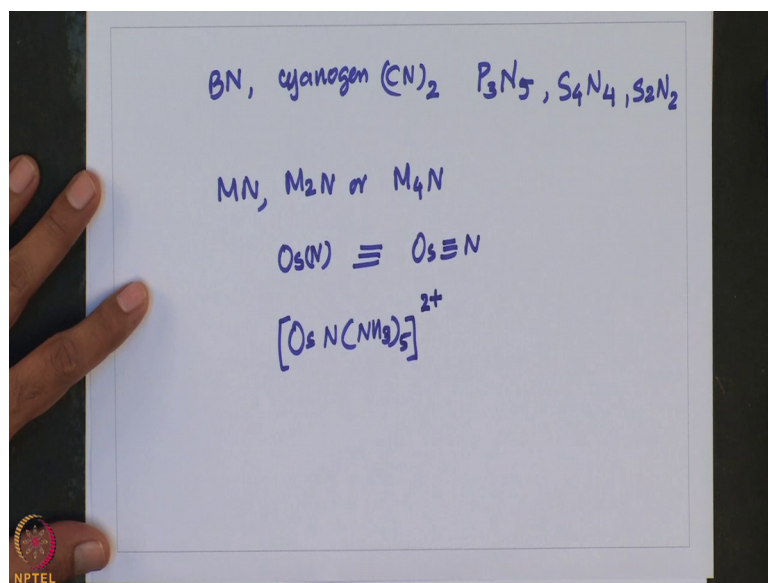 BN, cyanogen (CN)₂ P₃N₅, S₄N₄, S₂N₂
MN, M₂N or M₄N
Os(N) ≡ Os≡N
[OsN(NH₃)₅]²⁺
NPTEL